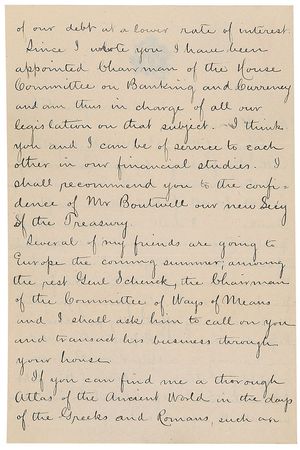 of our debt at a lower rate of interest.
Since I wrote you I have been
appointed Chairman of the House
Committee on Banking and Currency
and am thus in charge of all our
legislation on that subject. I think
you and I can be of service to each
other in our financial studies. I
shall recommend you to the confi-
dence of Mr Boutwell our new Secy
of the Treasury.
Several of my friends are going to
Europe the coming summer, among
the rest Genl Schenck, the Chairman
of the Committee of Ways of Means
and I shall ask him to call on you
and transact his business through
your house.
If you can find me a thorough
Atlas of the Ancient World in the days
of the Greeks and Romans, such an